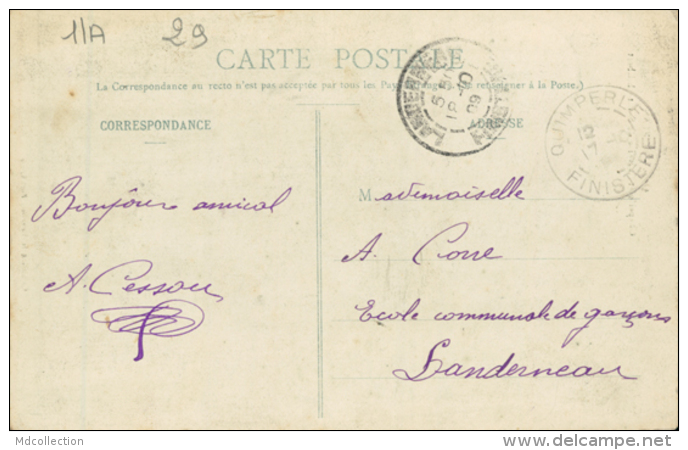 11A 29
CARTE POSTALE
La Correspondance au recto n'est pas acceptée par tous les Pays (se renseigner à la Poste.)
CORRESPONDANCE
ADRESSE
QUIMPERLÉ
FINISTERE
Bonjour amical
A. Cessou
Mademoiselle
A. Corre
Ecole communale de garçons
Landerneau
Mdcollection
www.delcampe.net